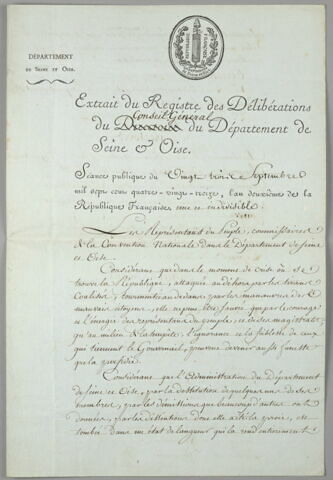 DÉPARTEMENT
DE SEINE ET OISE.
Extrait du Registre des Délibérations
Conseil Général
du Directoire du Département de
Seine & Oise.
Séance publique du Vingt trois Septembre
mil sept cent quatre-vingt-treize, l'an deuxième de la
République Française une et indivisible.
Les Représentants du Peuple, commissaires
de la Convention Nationale dans le Département de Seine
et Oise.
Considérant que dans le moment de crise où se
trouve la République, attaquée au dehors par les tirans
Coalisés, tourmentée au dedans par les manœuvres de
mauvais citoyens, elle ne peut être sauvée que par le courage
et l'énergie des représentans du peuple, et de ses magistrats
qu'au milieu de la tempête, l'ignorance et la faiblesse de ceux
qui tiennent le Gouvernail, peuvent devenir aussi funestes
que la perfidie.
Considérant que l'administration du Département
de Seine et Oise, par la destitution de quelques uns de ses
membres, par les démissions que beaucoup d'autres ont
données, par les détentions dont elle a été la proie, est
tombée dans un état de langueur qui la rend entièrement